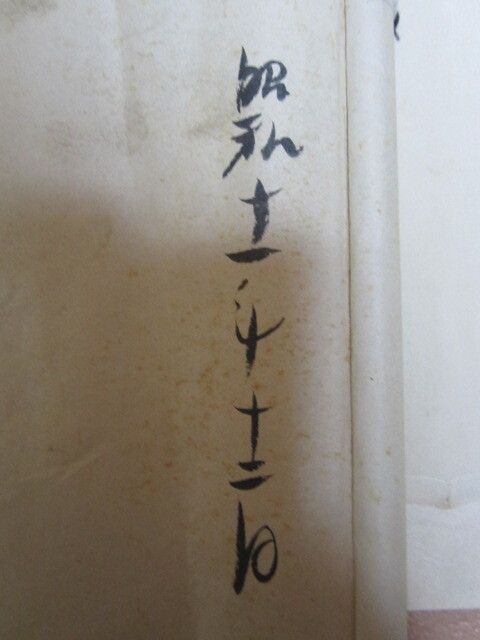 昭和十一年十二月